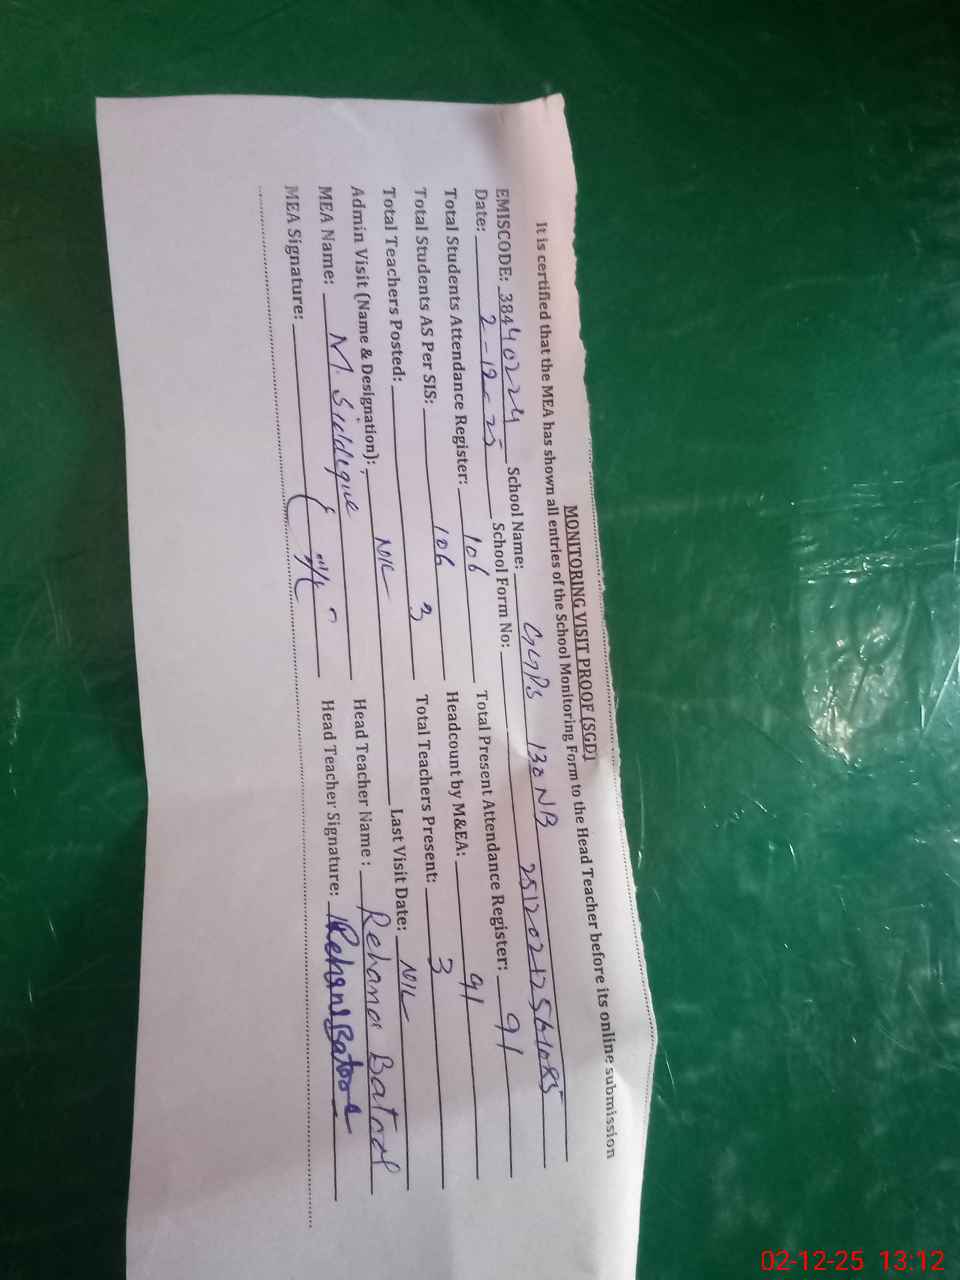 MONITORING VISIT PROOF (SGD)
It is certified that the MEA has shown all entries of the School Monitoring Form to the Head Teacher before its online submission
EMISCODE: 38440224 School Name: GGPS 130 NB
Date: 2-12-25 School Form No:
Total Students Attendance Register: 106 Total Present Attendance Register: 91
Total Students AS Per SIS: 106 Headcount by M&EA: 91
Total Teachers Posted: 3 Total Teachers Present: 3
Admin Visit (Name & Designation): NIL Last Visit Date: NIL
MEA Name: M. Siddique Head Teacher Name : Rehana Batool
MEA Signature: Head Teacher Signature: Rehana Batool
02-12-25 13:12